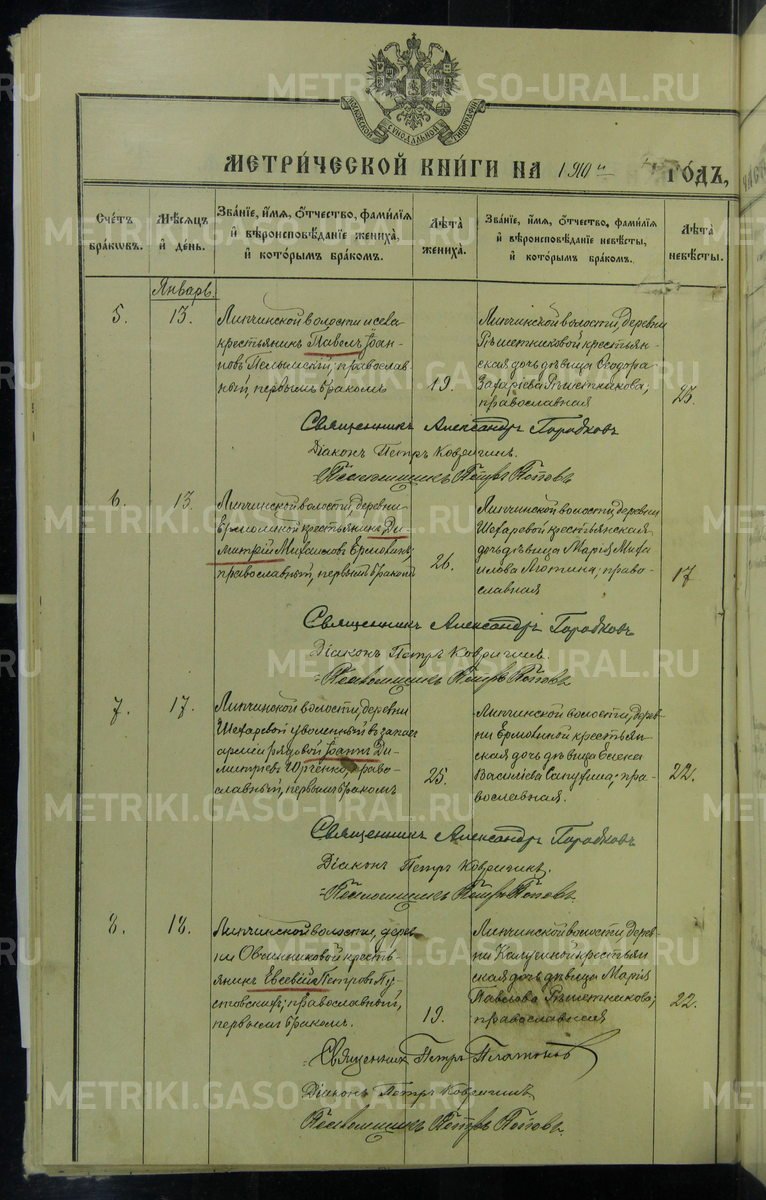 МОСКОВСКОЙ СѴНОДАЛЬНОЙ ТИПОГРАФІИ
МЕТРИ́ЧЕСКОЙ КНИ́ГИ НА 1910 й ГО́ДЪ,
Сче́тъ бра́кѡвъ.
Мѣ́сѧцъ и҆ де́нь.
Зва́нїе, и҆́мѧ, ѻ҆́тчество, фами́лїѧ и҆ вѣроисповѣ́данїе жениха̀, и҆ кото́рымъ бра́комъ.
Лѣ́та жениха̀.
Зва́нїе, и҆́мѧ, ѻ҆́тчество, фами́лїѧ и҆ вѣроисповѣ́данїе невѣ́сты, и҆ кото́рымъ бра́комъ.
Лѣ́та невѣ́сты.
Январь.
5.
13.
Липчинской волости и села
крестьянинъ Павелъ Іоан-
новъ Пелымскій; православ-
ный, первымъ бракомъ
19.
Липчинской волости, деревни
Рѣшетниковой крестьян-
ская дочь дѣвица Ѳеодора
Захаріева Рѣшетникова;
православная
23.
Священникъ Александръ Городковъ
Діаконъ Петръ Ковригинъ.
Псаломщикъ Петръ Поповъ
6.
13.
Липчинской волости, деревни
Ермолиной крестьянинъ Ди-
митрій Михаиловъ
православный, первымъ бракомъ
26.
Липчинской волости, деревни
Шехаревой крестьянская
дочь дѣвица Марія Миха
илова право-
славная
17
Священникъ Александръ Городковъ
Діаконъ Петръ Ковригинъ.
Псаломщикъ Петръ Поповъ
7.
17.
Липчинской волости, деревни
Шехаревой уволенный въ запас
арміи рядовой Іоаннъ Ди-
митріевъ право-
славный, первымъ бракомъ
25.
Липчинской волости, дерев-
ни Ермолиной крестьян-
ская дочь дѣвица Елена
Василіева пра-
вославная.
22.
Священникъ Александръ Городковъ
Діаконъ Петръ Ковригинъ.
Псаломщикъ Петръ Поповъ
8.
18.
Липчинской волости, дерев
ни Овсянниковой кресть-
янинъ Евсевій Петровъ Пу-
стовскихъ; православный,
первымъ бракомъ.
19.
Липчинской волости дерев-
ни крестьян
ская дочь дѣвица Марія
Павлова Рѣшетникова;
православная
22.
Священникъ Петръ Платоновъ
Діаконъ Петръ Ковригинъ
Псаломщикъ Петръ Поповъ
METRIKI.GASO-URAL.RU